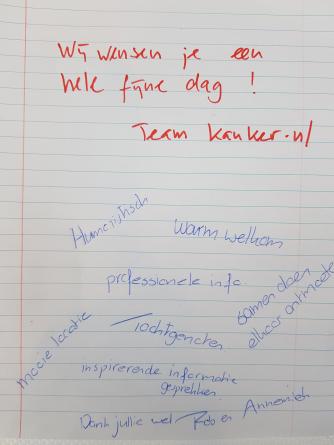 Wij wensen je een
hele fijne dag !
Team kanker.nl
Humoristisch
Warm welkom
professionele info.
samen doen
elkaar ontmoeten
mooie locatie
lotgenoten
inspirerende informatie
gesprekken.
Dank jullie wel Rob en Annemiek